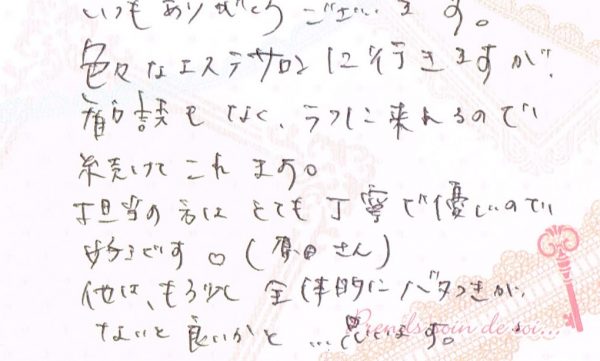 いつもありがとうございます。
色々なエステサロンに行きますが、
勧誘もなく、ラクに来れるので
続けてこれます。
担当の方はとても丁寧で優しいので
好きです。(原田さん)
他は、もう少し全体的にバタつきが
ないと良いかと…思います。
Prends soin de toi...